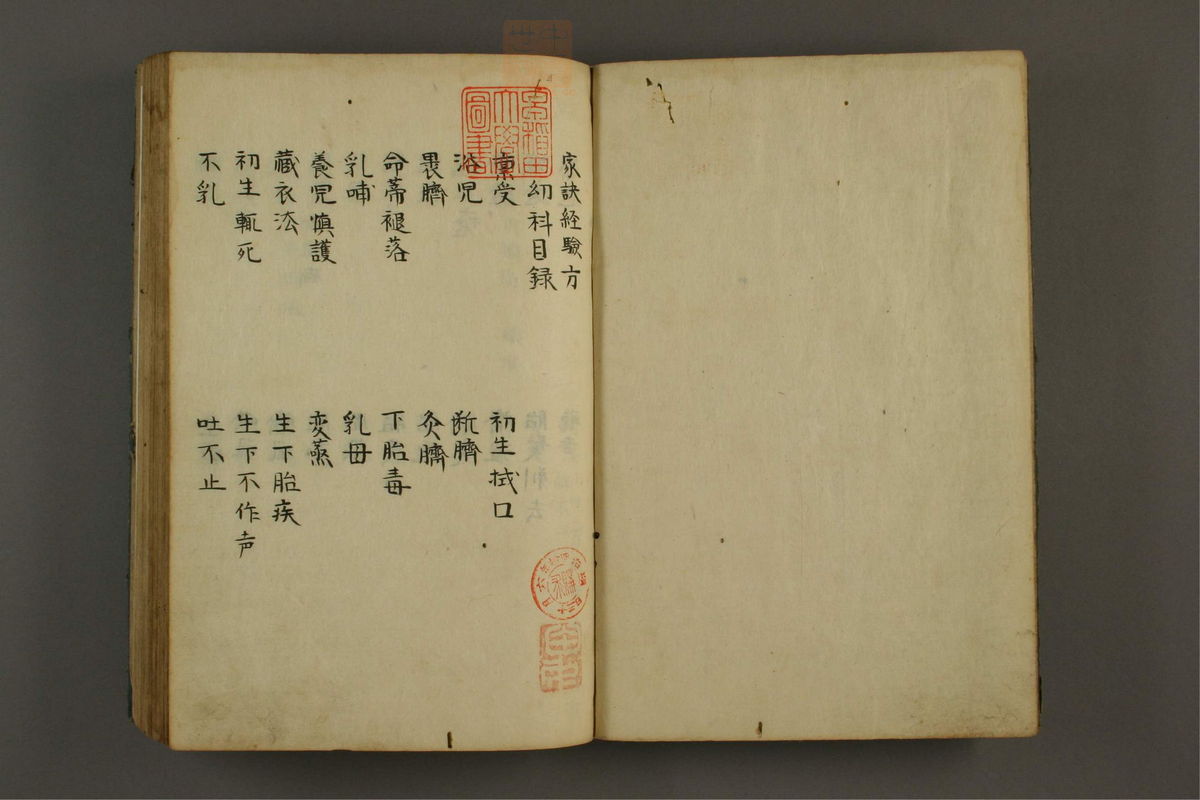 家訣経驗方
幼科目録
稟受
初生拭口
浴児
断臍
畏臍
灸臍
命蒂褪落
下胎毒
乳哺
乳母
養児慎護
変蒸
藏衣法
生下胎疾
初生輒死
生下不作声
不乳
吐不止
早稲田
大學
圖書